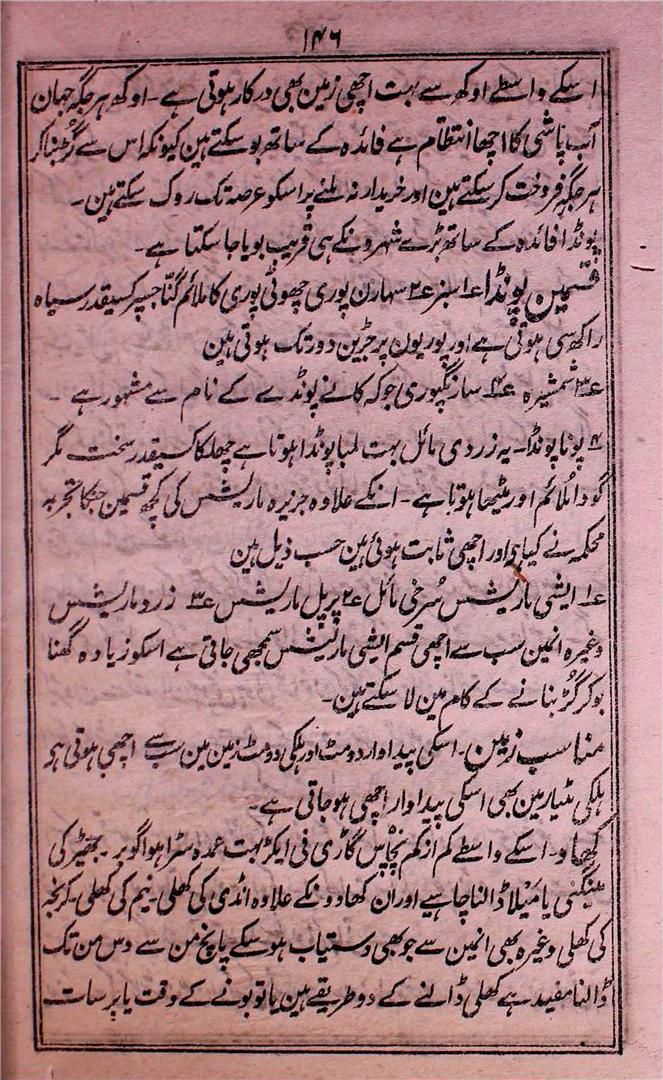 ۱۴۶
اسکے واسطے اوکھ سے بہت اچھی زمین بھی درکار ہوتی ہے۔ اوکھ ہر جگہ جہان
آب پاشی کا اچھا انتظام ہے فائدہ کے ساتھ بو سکتے ہین کیونکہ اس سے گڑ بنا کر
ہر جگہ فروخت کر سکتے ہین اور خریدار نہ ملنے پر اسکو عرصہ تک روک سکتے ہین۔
پونڈا فائدہ کے ساتھ بڑے شہرونکے ہی قریب بویا جا سکتا ہے۔
قسمین پونڈا ۱؎ سبز ۲؎ سہارن پوری چھوٹی پوری کا ملائم گنّا جسپر کسیقدر سیاہ
راکھ سی ہوتی ہے اور پوریون پر جڑین دور تک ہوتی ہین
۳؎ شمشیرہ ۴؎ سارنگپوری جو کہ کالے پونڈے کے نام سے مشہور ہے ۔
۴ پونا پونڈا۔ یہ زردی مائل بہت لمبا پونڈا ہوتا ہے چھلکا کسیقدر سخت مگر
گودا ملائم اور میٹھا ہوتا ہے۔ انکے علاوہ جزیرہ ماریشس کی کچھ قسمین جنکا تجربہ
محکمہ نے کیا ہے اور اچھی ثابت ہوئی ہین حسب ذیل ہین
۱؎ ایشی ماریشس سُرخی مائل ۲؎ پرپل ماریشس ۳؎ زرد ماریشس
وغیرہ انمین سب سے اچھی قسم ایشی ماریشس سمجھی جاتی ہے اسکو زیادہ گھنا
بو کر گُڑ بنانے کے کام مین لا سکتے ہین۔
مناسب زمین۔ اسکی پیداوار دومٹ اور ہلکی دومٹ زمین مین سب سے اچھی ہوتی ہو
ہلکی مٹیار مین بھی اسکی پیداوار اچھی ہو جاتی ہے۔
کھاو۔ اسکے واسطے کم از کم پچاس گاڑی فی ایکڑ بہت عمدہ سڑا ہوا گوبر۔ بھیڑ کی
مینگنی یا میلا ڈالنا چاہیے اور ان کھادونکے علاوہ انڈی کی کھلی۔ نیم کی کھلی۔ کرنجہ
کی کھلی وغیرہ بھی انمین سے جو بھی دستیاب ہو سکے پانچ من سے دس من تک
ڈالنا مفید ہے کھلی ڈالنے کے دو طریقے ہین یا تو بونے کے وقت یا برسات